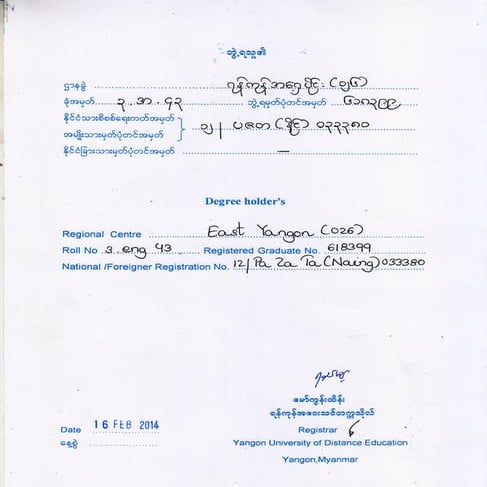 ဘွဲ့ရသူ၏
ဌာနခွဲ ရန်ကုန်အရှေ့ပိုင်း (၀၂၆)
ခုံအမှတ် ၃ အ ၄၃ ဘွဲ့ရမှတ်ပုံတင်အမှတ် ၆၁၈၃၉၉
နိုင်ငံသားစိစစ်ရေးကတ်အမှတ်
အမျိုးသားမှတ်ပုံတင်အမှတ် ၁၂/ ပဇတ (နိုင်) ၀၃၃၃၈၀
နိုင်ငံခြားသားမှတ်ပုံတင်အမှတ် —
Degree holder's
Regional Centre East Yangon (026)
Roll No 3 eng 43 Registered Graduate No. 618399
National /Foreigner Registration No. 12/ Pa Za Ta (Naing) 033380
ဒေါ်ကျွန်းထိန်း
ရန်ကုန်အဝေးသင်တက္ကသိုလ်
Date 16 FEB 2014
Registrar
နေ့စွဲ
Yangon University of Distance Education
Yangon,Myanmar